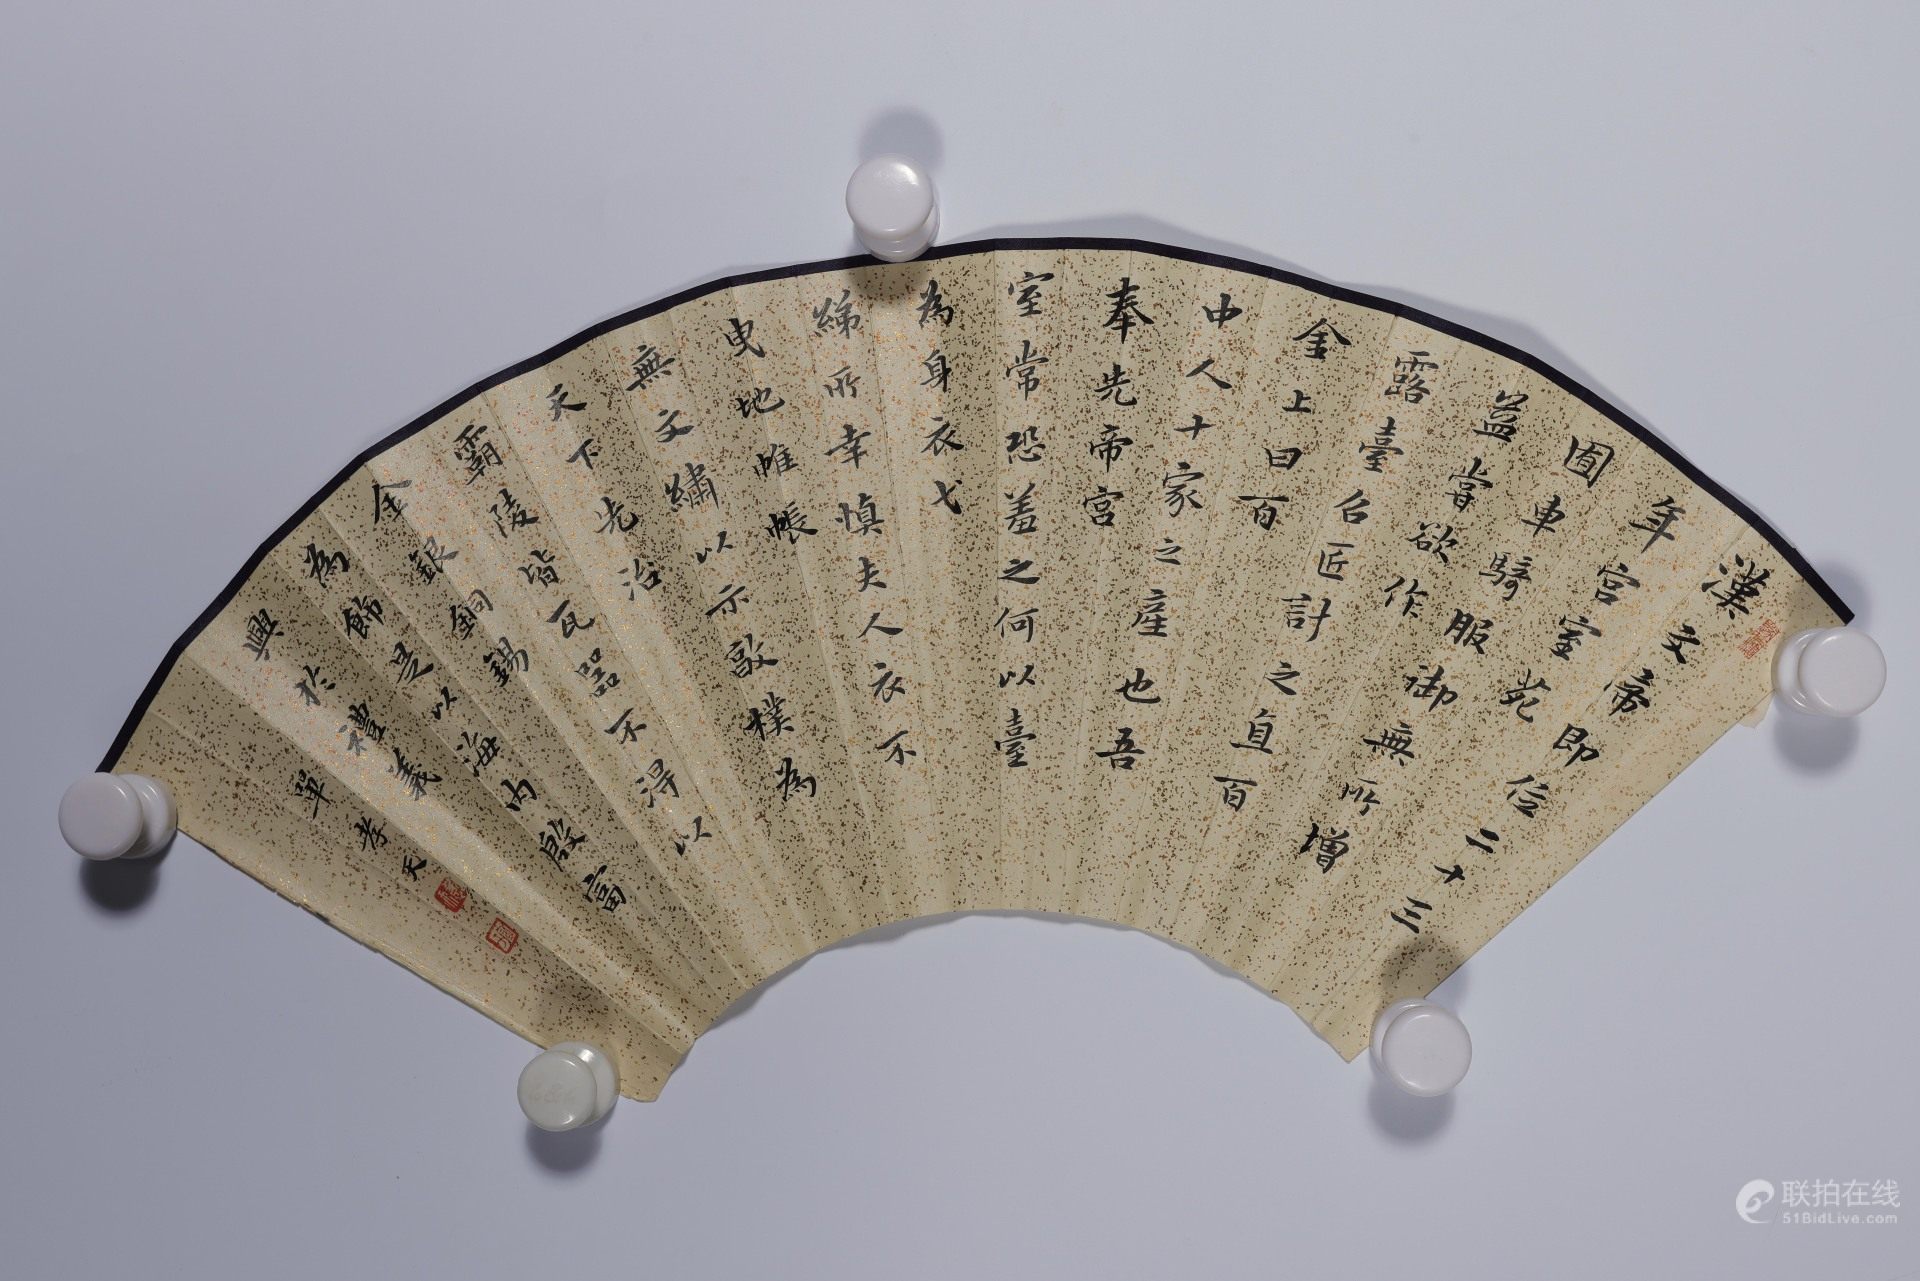 漢文帝即位二十三
年宮室苑
囿車騎服御無所增
益嘗欲作
露臺召匠計之直百
金上曰百
中人十家之產也吾
奉先帝宮
室常恐羞之何以臺
為身衣弋
綈所幸慎夫人衣不
曳地帷帳
無文繡以示敦樸為
天下先治
霸陵皆瓦器不得以
金銀銅錫
為飾是以海內殷富
興於禮義
單孝天
联拍在线
51BidLive.com